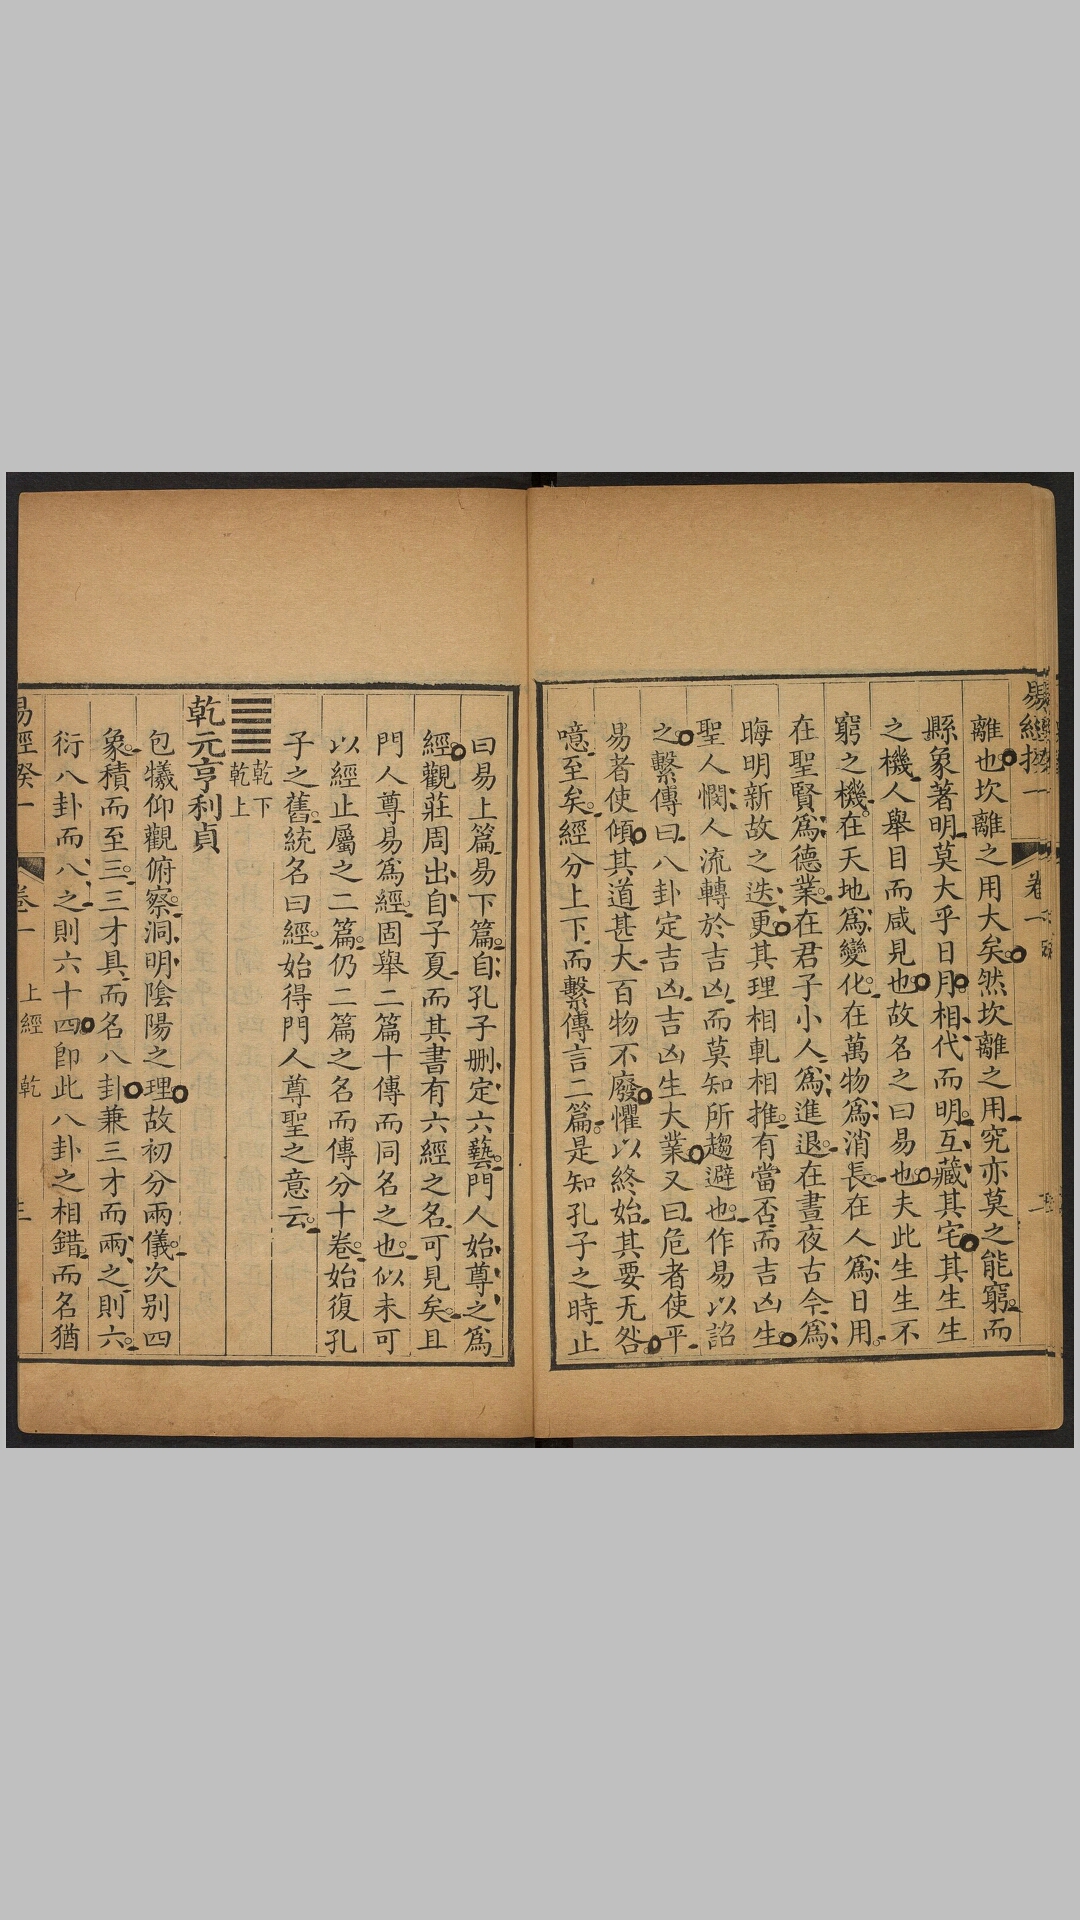 離也坎離之用大矣然坎離之用究亦莫之能窮而
縣象著明莫大乎日月相代而明互藏其宅其生生
之機人舉目而咸見也故名之曰易也夫此生生不
窮之機在天地爲變化在萬物爲消長在人爲日用
在聖賢爲德業在君子小人爲進退在晝夜古今爲
晦明新故之迭更其理相軋相推有當否而吉凶生
聖人憫人流轉於吉凶而莫知所趨避也作易以詔
之繫傳曰八卦定吉凶吉凶生大業又曰危者使平
易者使傾其道甚大百物不廢懼以終始其要无咎
噫至矣經分上下而繫傳言二篇是知孔子之時止
曰易上篇易下篇自孔子刪定六藝門人始尊之爲
經觀莊周出自子夏而其書有六經之名可見矣且
門人尊易爲經固舉二篇十傳而同名之也似未可
以經止屬之二篇仍二篇之名而傳分十卷始復孔
子之舊統名曰經始得門人尊聖之意云
乾下
乾上
乾元亨利貞
包犧仰觀俯察洞明陰陽之理故初分兩儀次别四
象積而至三三才具而名八卦兼三才而兩之則六
衍八卦而八之則六十四卽此八卦之相錯而名猶
易經揆一
卷一
上經
乾